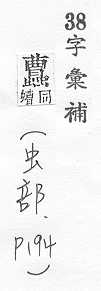 38
字彙補
同
（虫部、
P194）